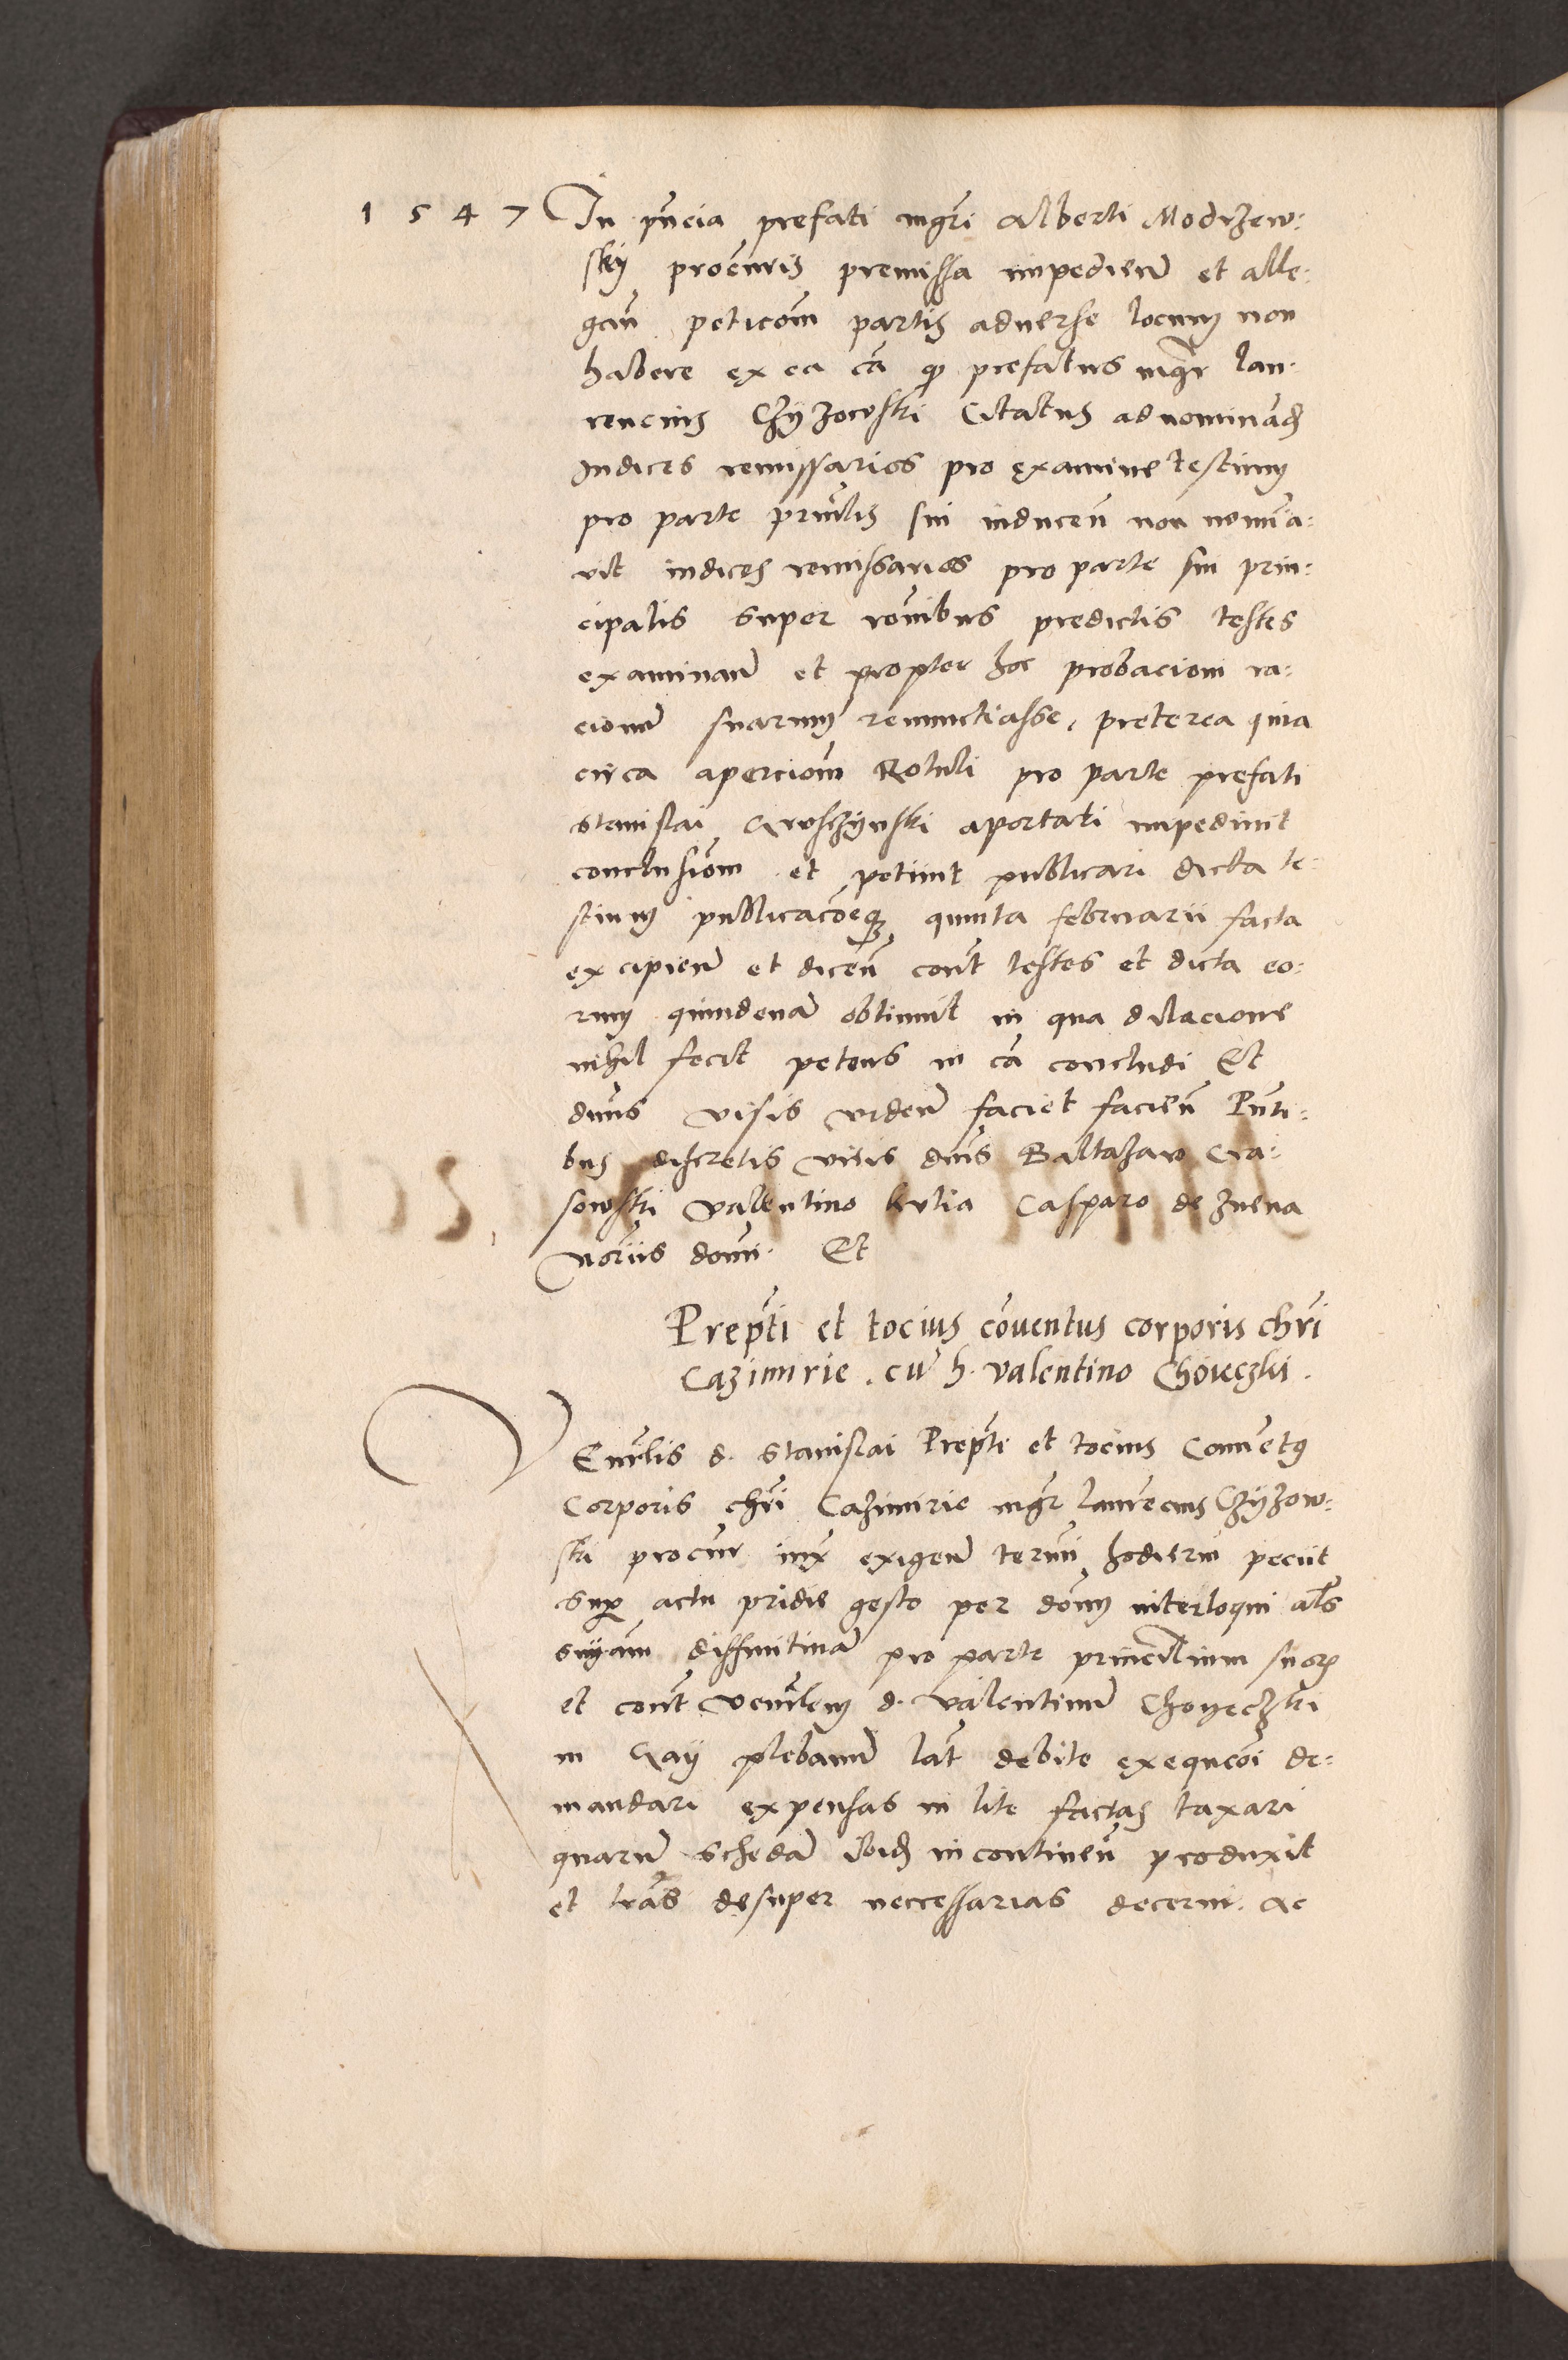 1547 In pñcia prefati mgri Alberti Modrzew:
sky procuris premissa impedien̄ et alle:
gan̄ peticom̄ partis adverse locum non
habere ex ea cā qȝ prefatus mgr Lau:
rencius Czyzowski Citatus ad nominand
Judices remissarios pro examine testium
pro parte prinlis sui inducen̄ non nomina:
vit iudices remissarios pro parte sui prin:
cipalis super ronibus predictis testes
examinan̄ et propter hoc probacioni ra:
cionū suarum renunctiasse, preterea quia
circa apercionem Rotuli pro parte prefati
Stanislai aportati impediuit
conclusiom̄ et petiit publicari dicta te:
stium publicacōeqȝ quinta februarii facta
excipien̄ et dicen̄ cont̄ testes et dicta eo:
rum quindenā obtinuit in qua dilacione
nihil fecit petens in cā concludi Et
dnus visis viden̄ faciet facien̄ Pnti:
bus discretis viris dnis Baltazaro Cra:
sowski Valentino Kvtia Casparo de Znena
noriis domi. Et
Prepti et tocius conventus corporis chri
Cazimirie. cū h. valentino Choieczki.
VEnrlis d. Stanislai Prepti et tocius Conuetꝯ
Corporis chri Cazimirie mgr laurecius Czyzow:
ski procur iux exigen̄ termi hodiern̄ peciit
Supr actu pridie gesto per dom̄ interloqui als
snyam diffinitiuā pro parte princilium suorꝝ
et cont venrlem d. Valentinū Choyeczki
in Gay plebanū lat debite exequcōi de:
mandari expensas in lite factas taxari
quarū schedā ibid incontinen̄ produxit
et lras desuper necessarias decerni. Ac